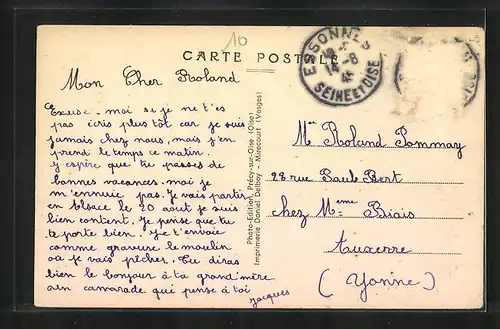 10
CARTE POSTALE
ESSONNES
14-8
SEINE ET OISE
Mon Cher Roland
Excuse-moi si je ne t'es
pas écris plus tôt car je suis
jamais chez nous, mais j'en
prend le temps ce matin.
J'espère que tu passes de
bonnes vacances. moi je
m'ennuie pas. Je vais partir
en Alsace le 20 août je suis
bien content. Je pense que tu
te porte bien. Je t'envoie
comme gravure le moulin
où je vais pêcher. Tu diras
bien le bonjour à ta grand'mère
un camarade qui pense à toi
Jacques
Photo-Edition, Précy-sur-Oise (Oise)
Imprimerie Daniel Delboy - Mirecourt (Vosges)
Mr Roland Pommay
28 rue Paul Bert
chez Mme Biais
Auxerre
(Yonne)